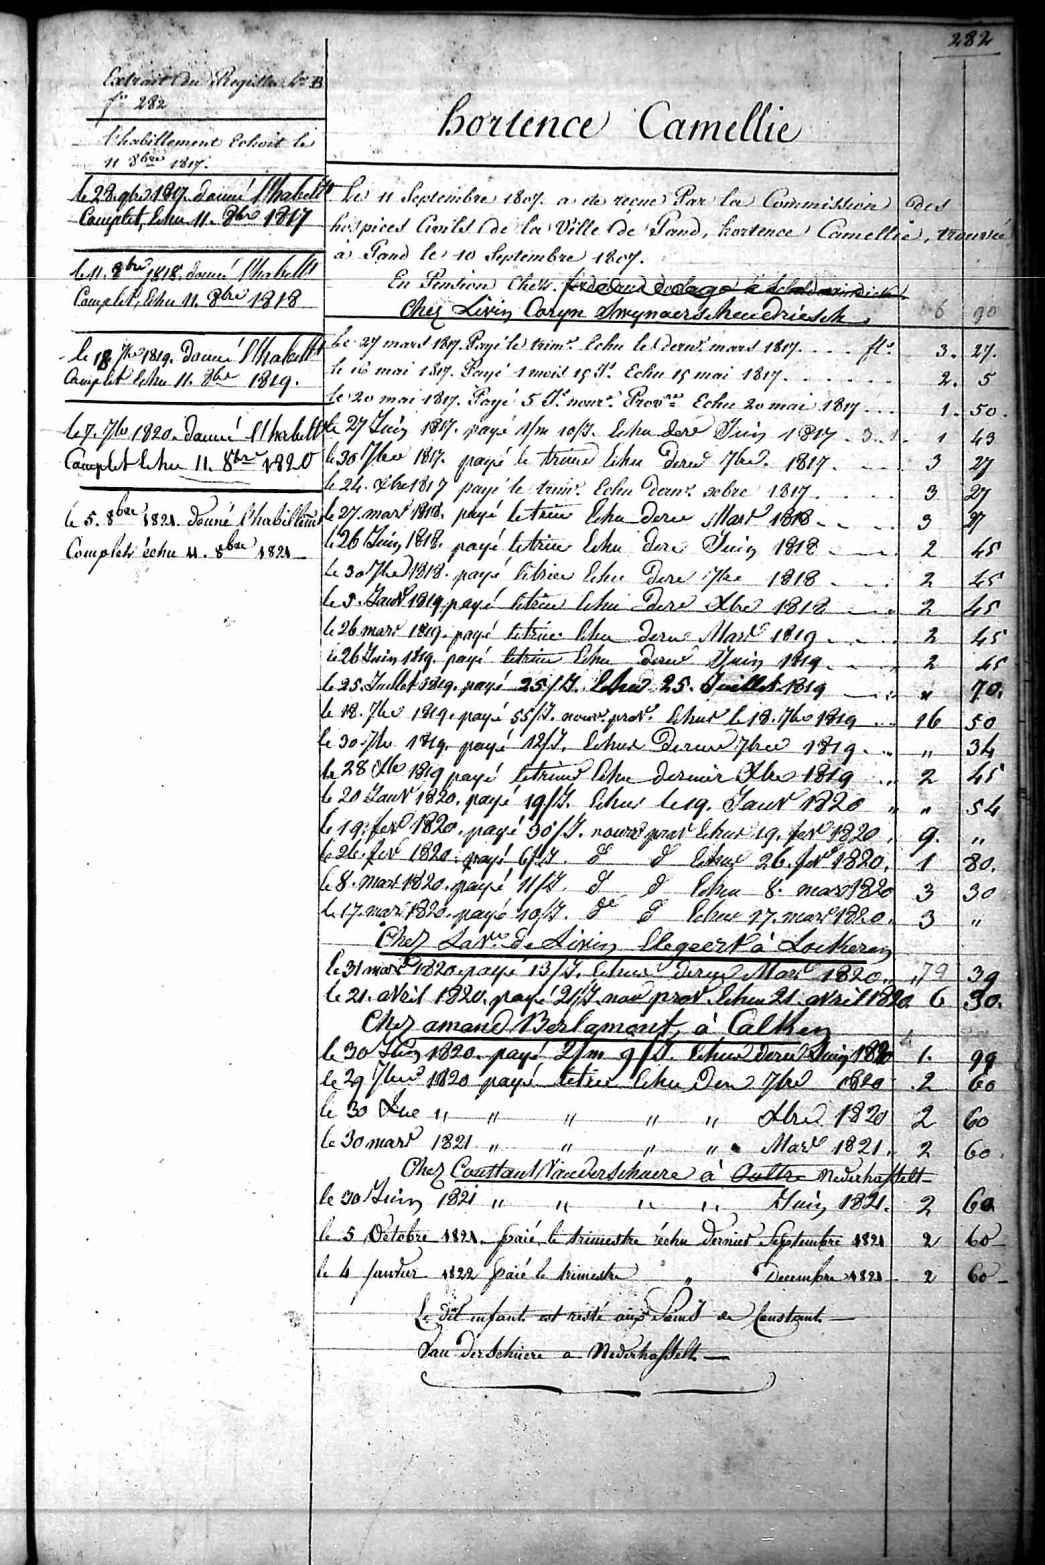 282
Extrait du Registre
f° 282
l'habillement Echoit le
11 8bre 1817.
le 28 9bre 1817. donné l'habillt
Complet, Echu 11. 8bre 1817
le 11. 8bre 1818. donné l'habillt
Complet, Echu 11. 8bre 1818
le 18 7bre 1819. donné l'habillt
Complet Echu 11. 8bre 1819.
le 7. 7bre 1820. donné l'habillt
Complet Echu 11. 8bre 1820
le 5. 8bre 1821. donné l'habillemt
Complet échu 11. 8bre 1821
hortence Camellie
Le 11 Septembre 1807. a été reçue Par la Commission des
hospices Civils de la Ville de Gand, hortence Camellie, trouvée
à Gand le 10 Septembre 1807.
En Pension Chez
Chez Livin Caryn
le 27 mars 1817. Payé le trimt. Echu le dernr. mars 1817. fls. 3. 27.
le 16 mai 1817. Payé 1 mois 15 Js. Echu 15 mai 1817. 2. 5
le 20 mai 1817. Payé 5 Js. nourr. Provre Echu 20 mai 1817 1. 50.
le 27 Juin 1817. payé 1/m 10/J. Echu dere Juin 1817 1 43
le 30 7bre 1817. payé le trime Echu derre 7bre. 1817. 3 27
le 24. xbre 1817 payé le trimt. Echu dernr. xbre 1817 3 27
le 27. mars 1818. payé letrim Echu dere Mars 1818 3 27
le 26 Juin 1818. payé letrim Echu dere Juin 1818 2 45
le 30 7bre 1818. payé letrim Echu dere 7bre 1818 2 45
le 5. Janvr 1819. payé letrim Echu dere Xbre 1818 2 45
le 26 mars 1819. payé letrim Echu derre Mars 1819 2 45
le 26 Juin 1819. payé letrim Echu derre Juin 1819 2 45
le 25. Juillet 1819. payé 25/J. Echu 25. Juillet 1819 " 70.
le 18. 7bre 1819. payé 55/J. nourr. provr. Echue le 18. 7bre 1819 16 50
le 30. 7bre 1819. payé 12/J. Echue Derre 7bre 1819. " 34
le 28 Xbre 1819 payé letrim Echu dernier Xbre 1819 2 45
le 20 Janvr 1820. payé 19/J. Echue le 19. Janvr 1820 " 54
le 19. fevr 1820. payé 30/J. nourr provr Echue 19. fevr 1820. 9. "
le 26. fevr 1820. payé 6/J. do do Echue 26. fevr 1820. 1 80.
le 8. mars 1820. payé 11/J. do do Echu 8. mars 1820 3 30
le 17. mars 1820. payé 10/J. do do Echue 17. mars 1820. 3 "
Chez La ve. de Livin à Lokeren
le 31 mars 1820. payé 13/J. Echue derre Mars 1820. 39
le 21. avril 1820. payé 21/J. nourr provr Echu 21. avril 1820. 6 30.
Chez amand Berlamont, à Calken
le 30 Juin 1820. payé 2/m 9/J. Echue derre Juin 1820 1. 99
le 29 7bre 1820 payé letrim Echu der 7bre 1820. 2 60
le 30 Xbre " " " " " Xbre 1820 2 60
le 30 mars 1821 " " " " Mars 1821. 2 60.
Chez Constant Vanderschuere à Oultre Nederhasselt
le 30 Juin 1821 " " " " Juin 1821. 2 60
le 5 Octobre 1821. paié le trimestre échu dernier Septembre 1821 2 60
le 4 Janvier 1822 paié le trimestre " Decembre 1821 2 60
Le dit enfant est resté aux Soins de Constant
Van derschuere a Nederhasselt